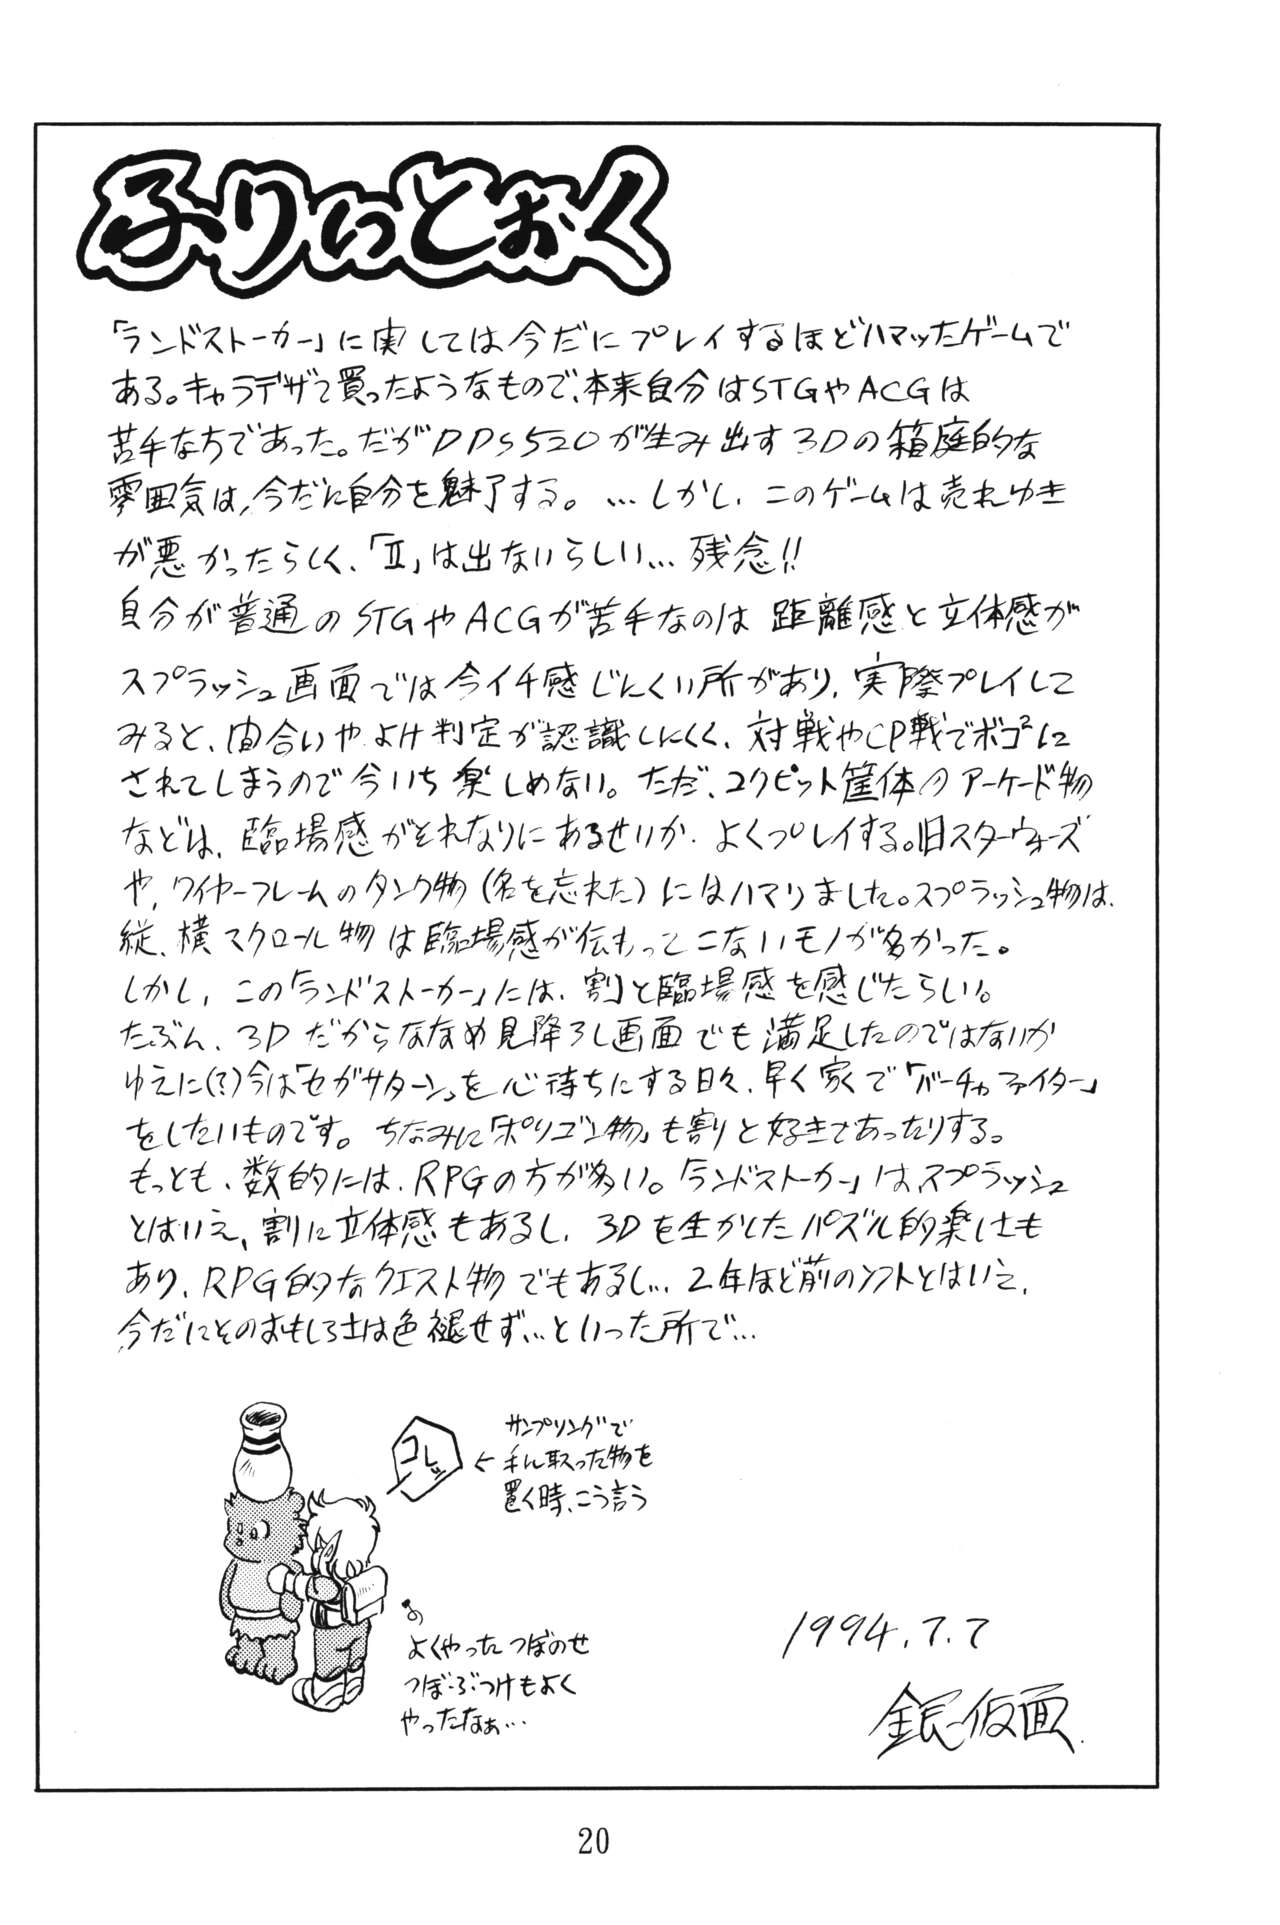 ふりぃとぉく
「ランドストーカー」に実しては今だにプレイするほどハマッたゲームで
ある。キャラデザで買ったようなもので、本来自分はSTGやACGは
苦手な方であった。だがDDS520が生み出す3Dの箱庭的な
雰囲気は、今だに自分を魅了する。…しかし、このゲームは売れゆき
が悪かったらしく、「Ⅱ」は出ないらしい…残念!!
自分が普通のSTGやACGが苦手なのは距離感と立体感が
スプラッシュ画面では今イチ感じにくい所があり、実際プレイして
みると、間合いやよけ判定が認識しにくく、対戦やCP戦でボコ²に
されてしまうので今いち楽しめない。ただ、コクピット筐体のアーケード物
などは、臨場感がそれなりにあるせいか、よくプレイする。旧スターウォーズ
や、ワイヤーフレームのタンク物(名を忘れた)にはハマりました。スプラッシュ物は、
縦、横スクロール物は臨場感が伝わってこないモノが多かった。
しかし、この「ランドストーカー」には、割と臨場感を感じたらしい。
たぶん、3Dだからななめ見降ろし画面でも満足したのではないか
ゆえに(?)今は「セガサターン」を心待ちにする日々、早く家で「バーチャファイター」
をしたいものです。ちなみに「ポリゴン物」も割と好きであったりする。
もっとも、数的には、RPGの方が多い。「ランドストーカー」は、スプラッシュ
とはいえ、割に立体感もあるし、3Dを生かしたパズル的楽しさも
あり、RPG的なクエスト物でもあるし… 2年ほど前のソフトとはいえ、
今だにそのおもしろさは色褪せず…といった所で…
コレッ
サンプリングで
手に取った物を
置く時、こう言う
よくやったつぼのせ
つぼぶつけもよく
やったなぁ…
1994.7.7
銀仮面
20